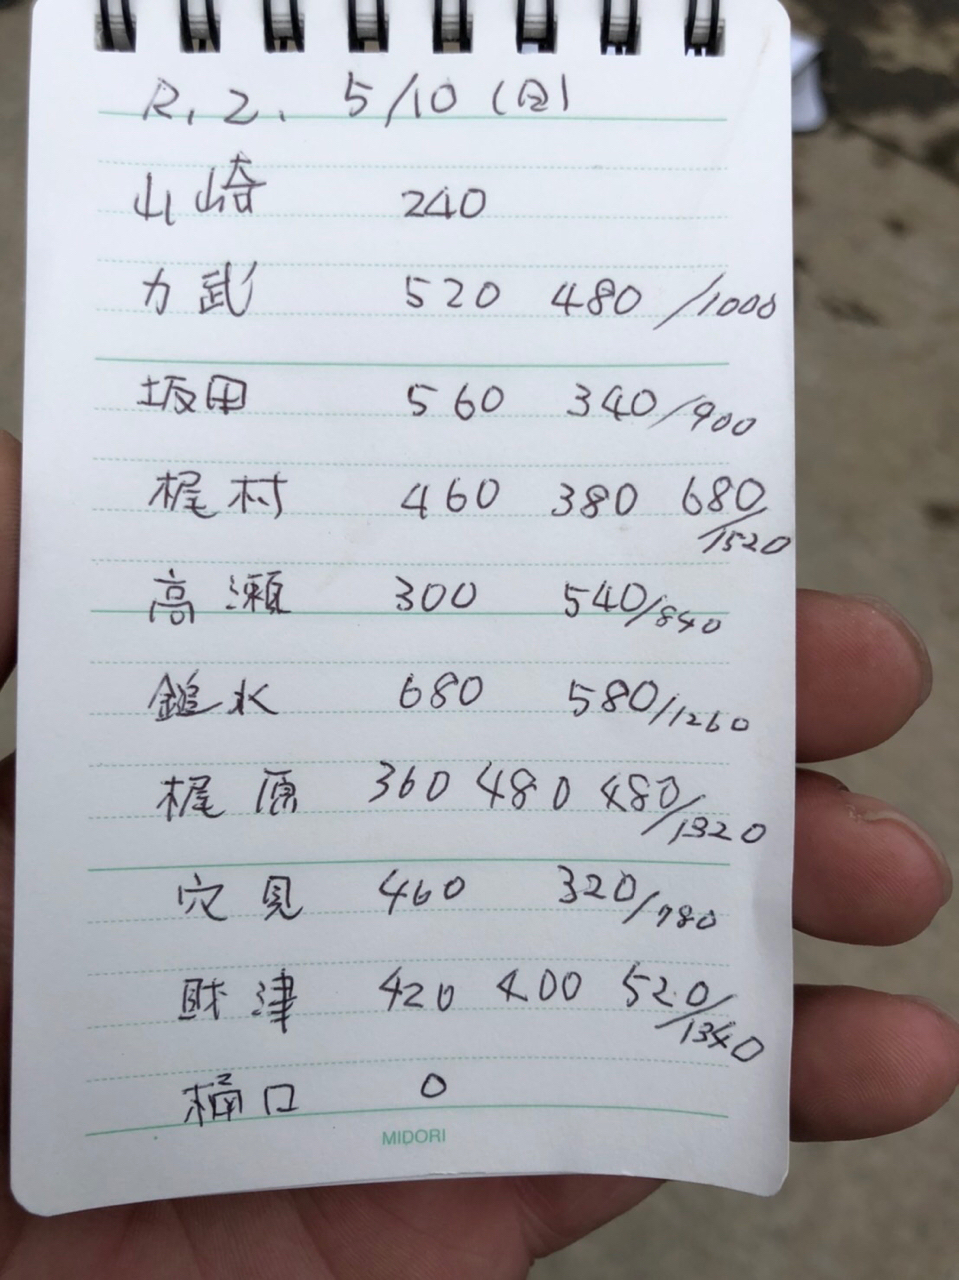 R.2. 5/10 (日)
山崎 240
力武 520 480 /1000
坂田 560 340/900
梶村 460 380 680
/1520
高瀬 300 540/840
鎚水 680 580/1260
梶原 360 480 480
/1320
穴見 460 320/780
財津 420 400 520
/1340
樋口 0
MIDORI